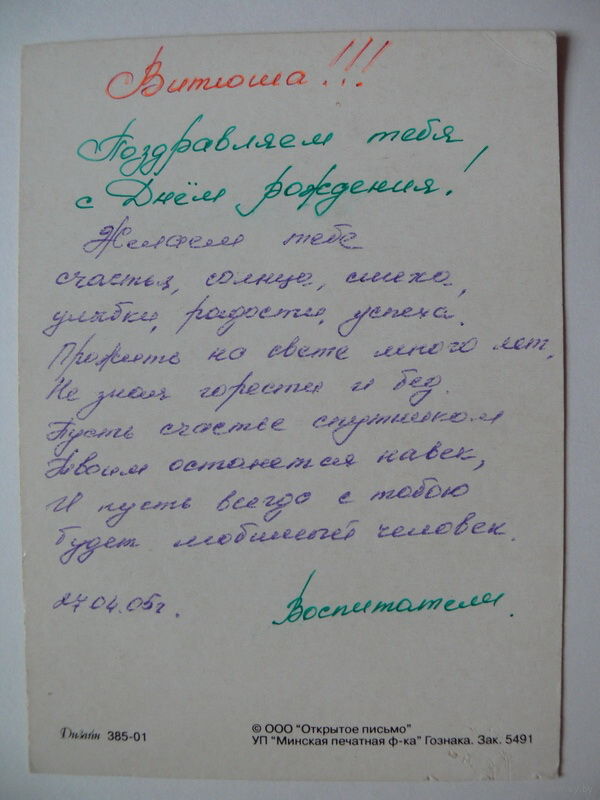 Витюша!!!
Поздравляем тебя
с Днём рождения!
Желаем тебе
счастья, солнца, смеха,
улыбки, радости, успеха.
Прожить на свете много лет,
Не зная горести и бед.
Пусть счастье спутником
твоим останется навек,
И пусть всегда с тобою
будет любимый человек.
27.04.05г.
Воспитатели.
Дизайн 385-01
© ООО "Открытое письмо"
УП "Минская печатная ф-ка" Гознака. Зак. 5491